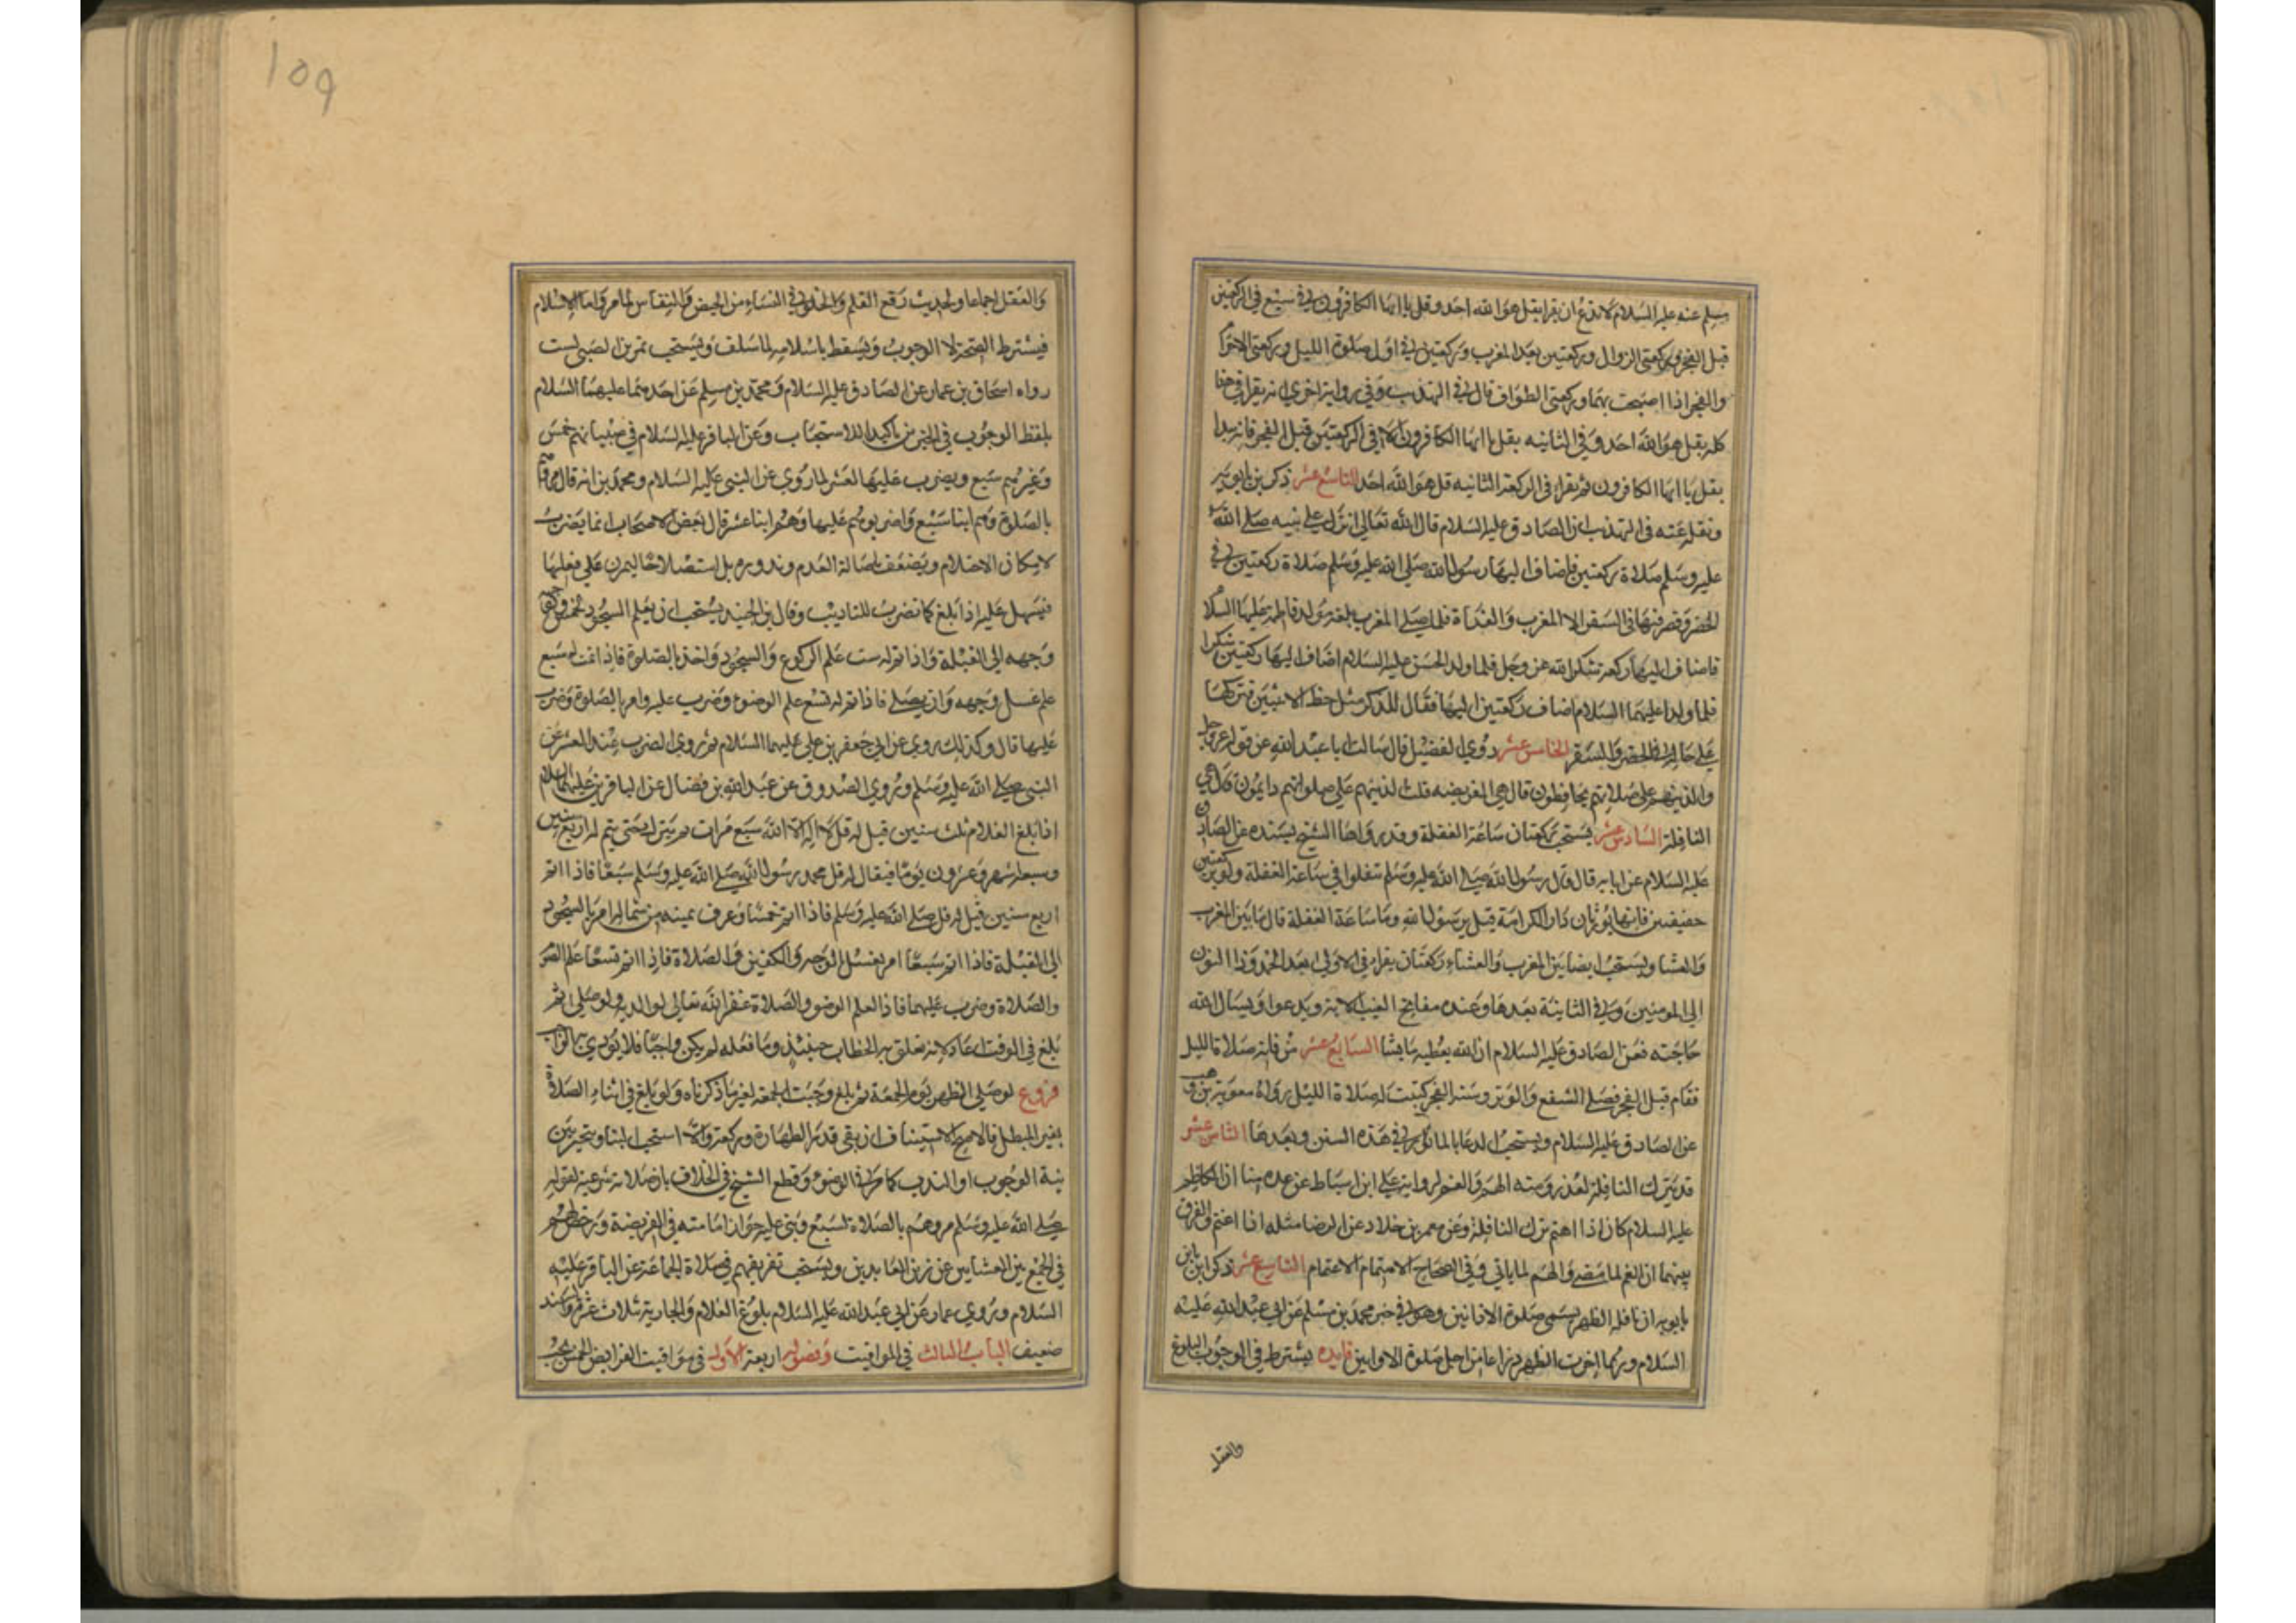 مسلم عنه عليه السلام لا تدع ان يقرا بقل هو الله احد وقل يا ايها الكافرون في سبع في الركعتين
قبل الفجر وركعتى الزوال وركعتين بعد المغرب وركعتين في اول صلوة الليل وركعتى الاحرام
والفجر اذا اصبحت بهما وركعتى الطواف قال في التهذيب وفي رواية اخرى انه يقرا في هذا
كله بقل هو الله احد وفي الثانيه بقل يا ايها الكافرون الا في الركعتين قبل الفجر فانه يبدا
بقل يا ايها الكافرون ثم يقرا في الركعة الثانيه قل هو الله احد التاسع عشر ذكر بن بابويه
ونقل عنه في التهذيب ان الصادق عليه السلام قال الله تعالى انزل على نبيه صلى الله
عليه وسلم صلاة ركعتين فاضاف اليها رسول الله صلى الله عليه وسلم صلاة ركعتين في
الحضر وقصر فيها في السفر الا المغرب والغداة فلما صلى المغرب بلغه مولد فاطمة عليها السلام
فاضاف اليها ركعة شكرا لله عز وجل فلما ولد الحسن عليه السلام اضاف اليها ركعتين شكرا
فلما ولدا عليهما السلام اضاف ركعتين اليها فقال للذكر مثل حظ الانثيين فتركها
على حالها في الحضر والسفر الخامس عشر روى الفضيل قال سالت ابا عبد الله عن قوله عز وجل
والذين هم على صلاتهم يحافظون قال هي الفريضه قلت الذين هم على صلواتهم دايمون قال هي
النافلة السادس عشر يستحب ركعتان ساعة الغفلة وقد رواها الشيخ بسنده عن الصادق
عليه السلام عن ابايه قال قال رسول الله صلى الله عليه وسلم تنفلوا في ساعة الغفلة ولو بركعتين
خفيفتين فانهما يورثان دار الكرامة قيل يرسول الله وما ساعة الغفلة قال ما بين المغرب
والعشا ويستحب ايضا بين المغرب والعشاء ركعتان يقرا في الاولى بعد الحمد وذا النون
الى المومنين وفي الثانية بعدها وعنده مفاتح الغيب الاية ويدعوا ويسال الله
حاجته فعن الصادق عليه السلام ان الله يعطيه ما يشا السابع عشر من فاتته صلاة الليل
فقام قبل الفجر فصلى الشفع والوتر وسنة الفجر كتبت له صلاة الليل رواه معوية بن وهب
عن الصادق عليه السلام ويستحب الدعا بالماثور في هذه السنن وبعدها الثامن عشر
قد يترك النافلة لعذر ومنه الهم والغم لرواية على ابن اسباط عن عدة منا ان الكاظم
عليه السلام كان اذا اهتم ترك النافلة وعن معمر بن خلاد عن الرضا مثله اذا اغتم والفرق
بينهما ان الغم لما مضى والهم لما ياتي وفي الصحاح الاهتمام الاغتمام التاسع عشر ذكر ابن
بابويه ان نافلة الظهر يسمى صلوة الاوابين وهو في خبر محمد بن مسلم عن ابي عبد الله عليه
السلام وربما اخرت الظهر ذراعا من اجل صلوة الاوابين فايده يشترط في الوجوب البلوغ
والعقل
١٥٩
والعقل اجماعا ولحديث رفع القلم والخلو في النساء من الحيض والنفاس لما مر واما الاسلام
فيشترط الصحة لا الوجوب ويسقط باسلامه لما سلف ويستحب تمرين الصبى لست
رواه اسحاق بن عمار عن الصادق عليه السلام ومحمد بن مسلم عن احدهما عليهما السلام
بلفظ الوجوب في الخبرين تاكيدا للاستحباب وعن الباقر عليه السلام في صبيانهم خمس
وغيرهم سبع ويضرب عليها لعشر لما روى عن النبى عليه السلام ومحمد بن انه قال مروهم
بالصلوة وهم ابنا سبع واضربوهم عليها وهم ابنا عشر قال بعض الاصحاب انما يضرب
لامكان الاحتلام ويضعف باصالة العدم وندوره بل استصلاحا ليمرن على فعلها
فيسهل عليه اذا بلغ كما تضرب للتاديب وقال بن الجنيد يستحب ان يعلم السجود لخمس ويوجه
وجهه الى القبلة واذا تم له ست علم الركوع والسجود واخذ بالصلوة فاذا تمت له سبع
علم غسل وجهه وان يصلى فاذا تم له تسع علم الوضوء وضرب عليه وامر بالصلوة وضرب
عليها قال وكذلك روى عن ابي جعفر بن على عليهما السلام ثم روى الضرب عند العشر عن
النبى صلى الله عليه وسلم وروى الصدوق عن عبد الله بن فضال عن الباقر بن عليهما السلام
اذا بلغ الغلام ثلث سنين قيل له قل لا اله الا الله سبع مرات ثم يترك حتى يتم له اربع سنين
وسبعة شهر وعشرون يوما فيقال له قل محمد رسول الله صلى الله عليه وسلم سبعا فاذا اتم
اربع سنين قيل له قل صلى الله عليه وسلم فاذا اتم خمسا وعرف يمينه من شماله امر بالسجود
الى القبلة فاذا اتم سبعا امر بغسل الوجه والكفين والصلاة فاذا اتم تسعا علم الضو
والصلاة وضرب عليهما فاذا العلم الوضو والصلاة غفر الله تعالى لوالديه ولو صلى ثم
بلغ في الوقت اعاد لانه تعلق به الخطاب حينئذ وما فعله لم يكن واجبا فلا يودى به الواجب
فروع لو صلى الظهر يوم الجمعة ثم بلغ وجبت الجمعة لغير ما ذكرناه ولو بلغ في اثناء الصلاة
بغير المبطل فالاصح الاستيناف ان بقي قدر الطهارة وركعة والا استحب البنا ويتخير بين
نية الوجوب او الندب كما مر في الوضوء وقطع الشيخ في الخلاف بان صلاته شرعية لقوله
صلى الله عليه وسلم مروهم بالصلاة لسبع وبنى عليه جواز امامته في الفريضة ورخص لهم
في الجمع بين العشايين عن زين العابدين ويستحب تفريقهم في صلاة الجماعة عن الباقر عليه
السلام وروى عمار عن ابي عبد الله عليه السلام بلوغ الغلام والجارية ثلاث عشر والسند
ضعيف الباب الثالث في المواقيت وفصوله اربعة الاول في مواقيت الفرايض الخمس يجب